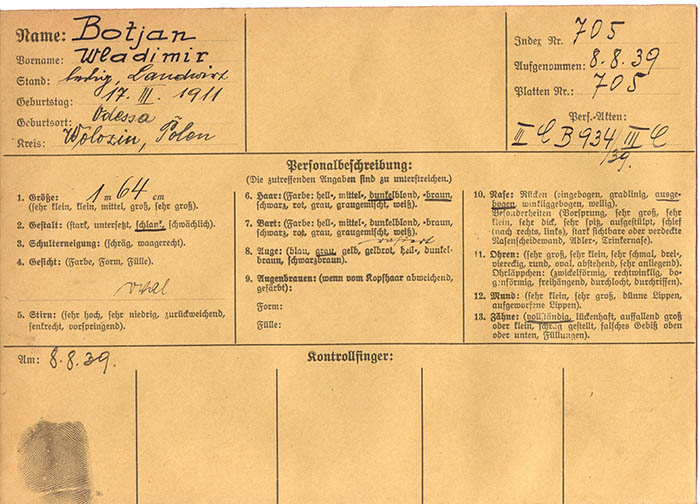 Name: Botjan
Vorname: Wladimir
Stand: ledig, Landwirt
Geburtstag: 17. III. 1911
Geburtsort: Odessa
Kreis: Wolozin, Polen
Index Nr. 705
Aufgenommen: 8.8.39
Platten Nr.: 705
Pers.-Akten:
III C B 934/III C
/39.
Personalbeschreibung:
(Die zutreffenden Angaben sind zu unterstreichen.)
1. Größe: 1 m 64 cm
(sehr klein, klein, mittel, groß, sehr groß).
2. Gestalt: (stark, untersetzt, schlank, schwächlich).
3. Schulterneigung: (schräg, waagerecht).
4. Gesicht: (Farbe, Form, Fülle).
oval
5. Stirn: (sehr hoch, sehr niedrig, zurückweichend,
senkrecht, vorspringend).
6. Haar: (Farbe: hell-, mittel-, dunkelblond, -braun,
schwarz, rot, grau, graugemischt, weiß).
7. Bart: (Farbe: hell-, mittel-, dunkelblond, -braun,
schwarz, rot, grau, graugemischt, weiß).
rasiert
8. Auge: (blau, grau, gelb, gelbrot, hell-, dunkel-
braun, schwarzbraun).
9. Augenbrauen: (wenn vom Kopfhaar abweichend,
gefärbt):
Form:
Fülle:
10. Nase: Rücken (eingebogen, gradlinig, ausge-
bogen, winkliggebogen, wellig).
Besonderheiten (Vorsprung, sehr groß, sehr
klein, sehr dick, sehr spitz, aufgestülpt, schief
nach rechts, links), stark sichtbare oder verdeckte
Nasenscheidewand, Adler-, Trinkernase).
11. Ohren: (sehr groß, sehr klein, sehr schmal, drei-,
viereckig, rund, oval, abstehend, sehr anliegend).
Ohrläppchen: (zwickelförmig, rechtwinklig, bo-
genförmig, freihängend, durchlocht, durchrissen).
12. Mund: (sehr klein, sehr groß, dünne Lippen,
aufgeworfene Lippen).
13. Zähne: (vollständig, lückenhaft, auffallend groß
oder klein, schräg gestellt, falsches Gebiß oben
oder unten, Füllungen).
Am: 8.8.39.
Kontrollfinger: